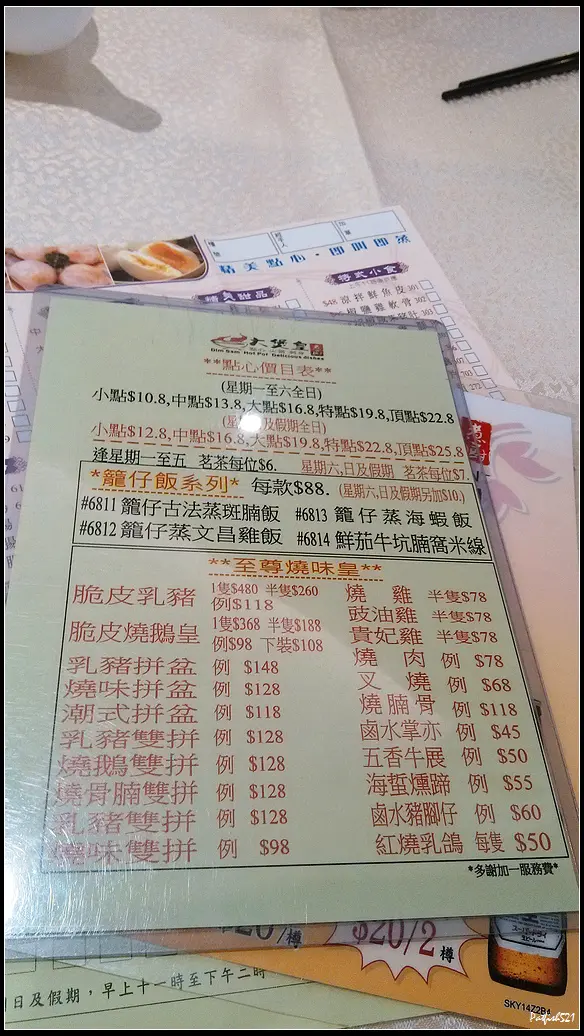 精美點心·即叫即蒸
特式小食
精美甜品
$48涼拌鮮魚皮301
302
303
大煲皇
Dim Sum Hot Pot Delicious dishes
**點心價目表**
(星期一至六全日)
小點$10.8,中點$13.8,大點$16.8,特點$19.8,頂點$22.8
(星期日及假期全日)
小點$12.8,中點$16.8,大點$19.8,特點$22.8,頂點$25.8
逢星期一至五 茗茶每位$6. 星期六,日及假期 茗茶每位$7.
*籠仔飯系列* 每款$88. (星期六,日及假期另加$10.)
#6811 籠仔古法蒸斑腩飯 #6813 籠仔蒸海蝦飯
#6812 籠仔蒸文昌雞飯 #6814 鮮茄牛坑腩窩米線
**至尊燒味皇**
脆皮乳豬 1隻$480 半隻$260
例$118
脆皮燒鵝皇 1隻$368 半隻$188
例$98 下裝$108
乳豬拼盆 例 $148
燒味拼盆 例 $128
潮式拼盆 例 $118
乳豬雙拼 例 $128
燒鵝雙拼 例 $128
燒骨腩雙拼 例 $128
乳豬雙拼 例 $128
燒味雙拼 例 $98
燒雞 半隻$78
豉油雞 半隻$78
貴妃雞 半隻$78
燒肉 例 $78
叉燒 例 $68
燒腩骨 例 $118
鹵水掌亦 例 $45
五香牛展 例 $50
海蜇燻蹄 例 $55
鹵水豬腳仔 例 $60
紅燒乳鴿 每隻 $50
*多謝加一服務費*
/樽
$20/2樽
日及假期，早上十一時至下午二時
SKY14Z2B#
Padish521